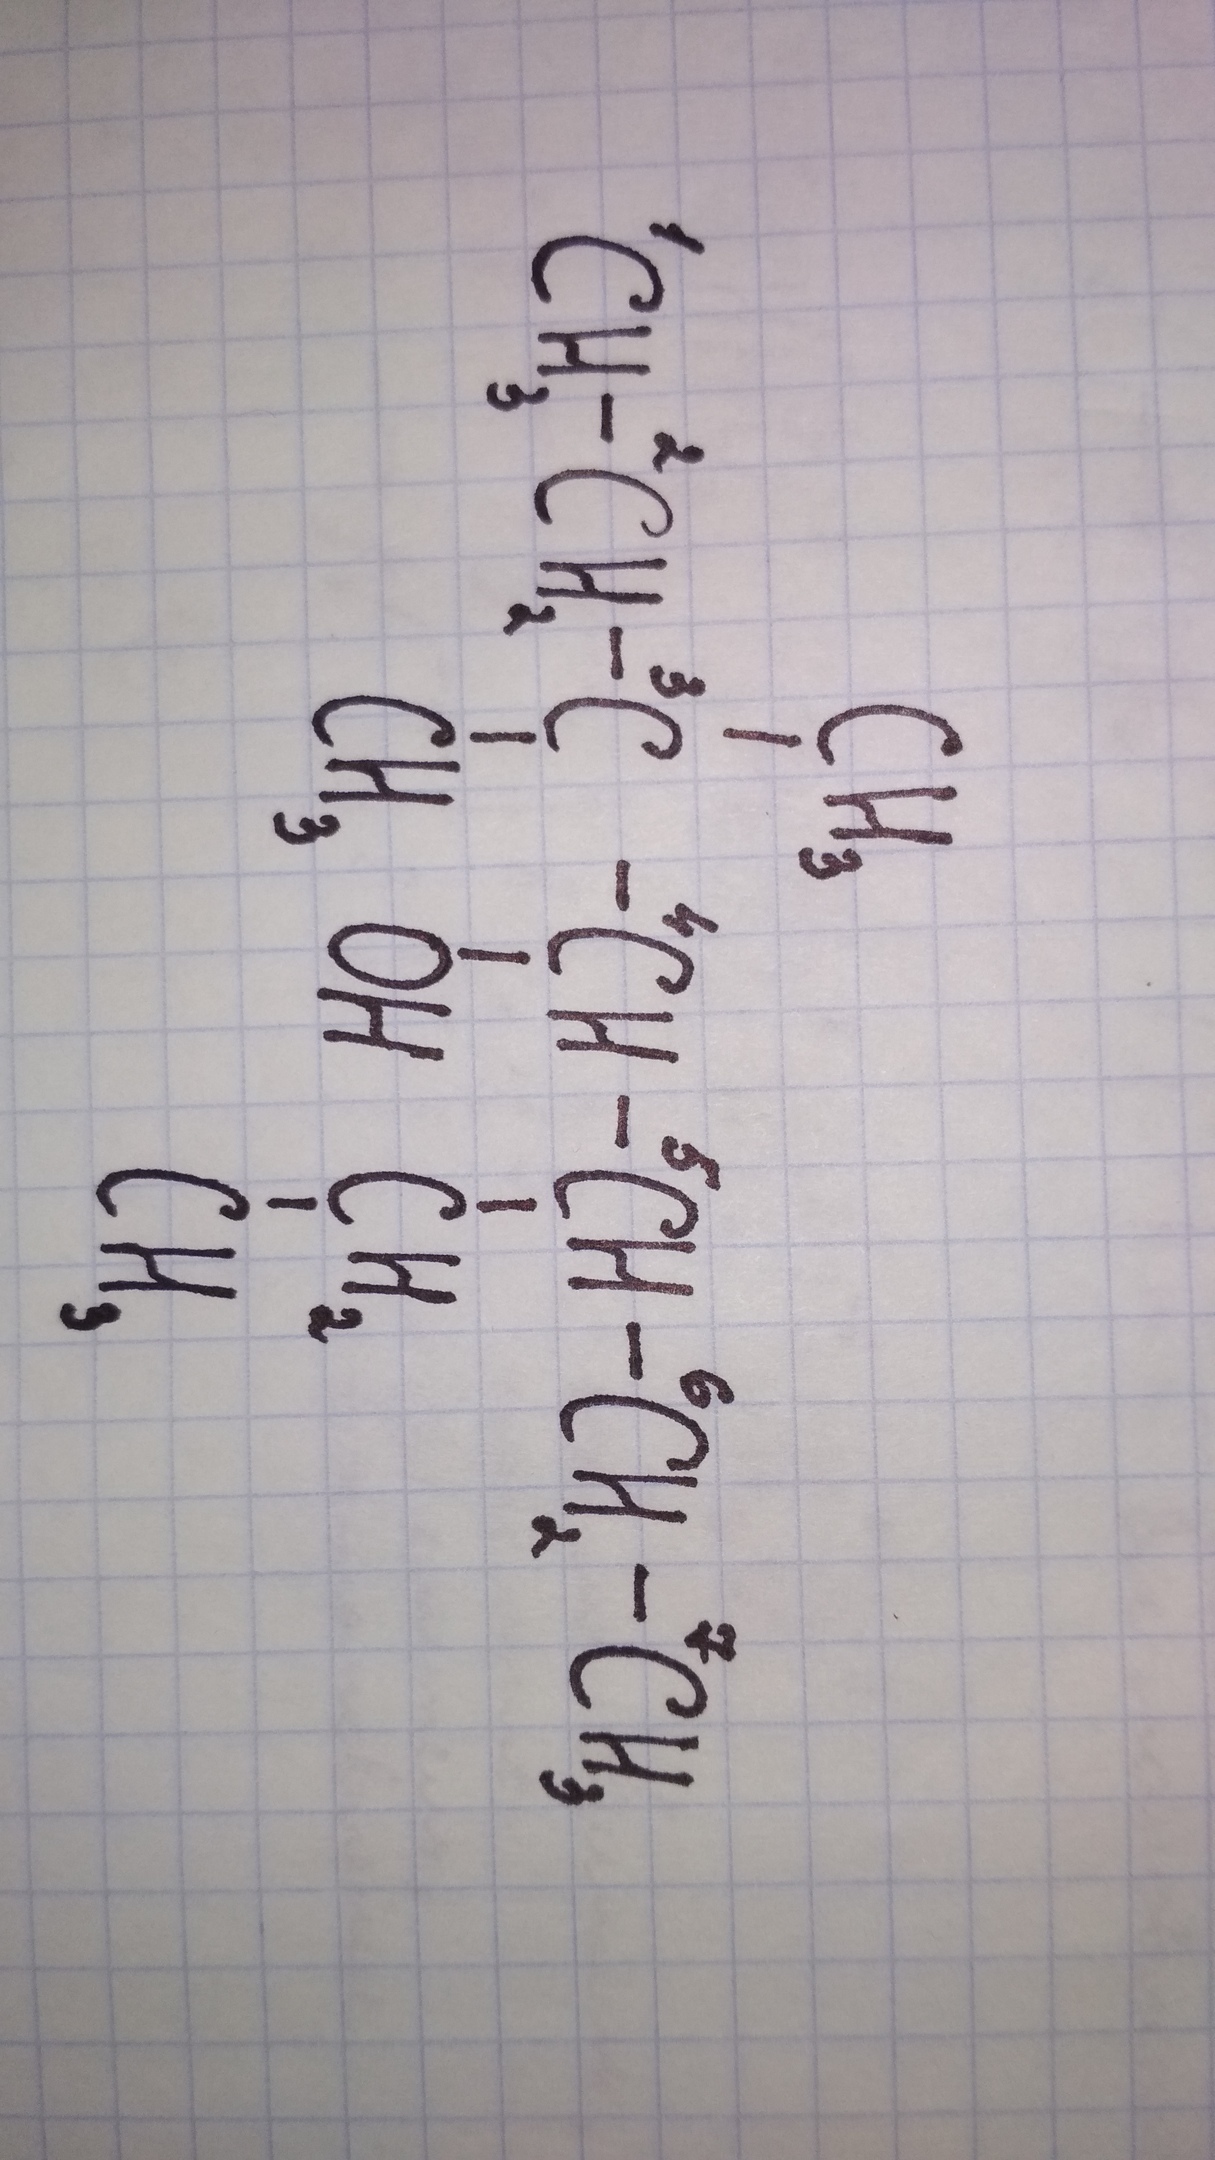 CH₃
¹CH₃ – ²CH₂ – ³C – ⁴CH – ⁵CH – ⁶CH₂ – ⁷CH₃
CH₃ OH CH₂
CH₃